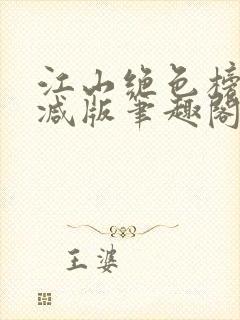 江山绝色榜
减版笔趣阁
王婆